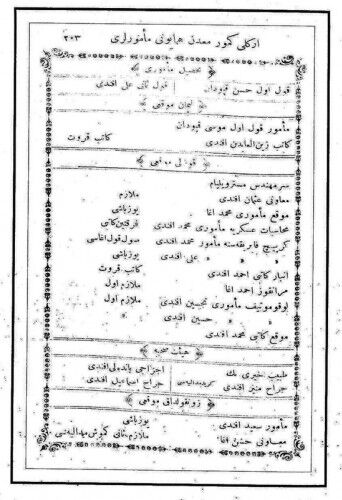 ارکلی کمور معدن همایونی مأمورلری ۲۰۳
تحصیل مأموری
قول اول حسن قپودان قول ثانی علی افندی
لیمان موقعی
مأمور قول اول موسی قپودان
کاتب زین العابدین افندی کاتب قروت
موقعی
سرمهندس مستر ویلیام
معاونی عثمان افندی ملازم
موقع مأموری محمد اغا یوزباشی
محاسبات عسکریه مأموری محمد افندی فرقتین کاتبی
فابریقه سنه مأمور محمد افندی صول قول اغاسی
» » علی افندی یوزباشی
انبار کاتبی احمد افندی کاتب قروت
مرانغوز احمد اغا ملازم اول
لوقوموتیف مأموری تحسین افندی ملازم اول
» » حسین افندی
موقع کاتبی محمد افندی
هیئت صحیه
طبیب خیری بك اجزاجی افندی
جراح منیر افندی جراح اسماعیل افندی
زونغولداق موقعی
مأمور سعید افندی یوزباشی
معاونی حسن اغا ملازم ثانی کومش مدالیه سی